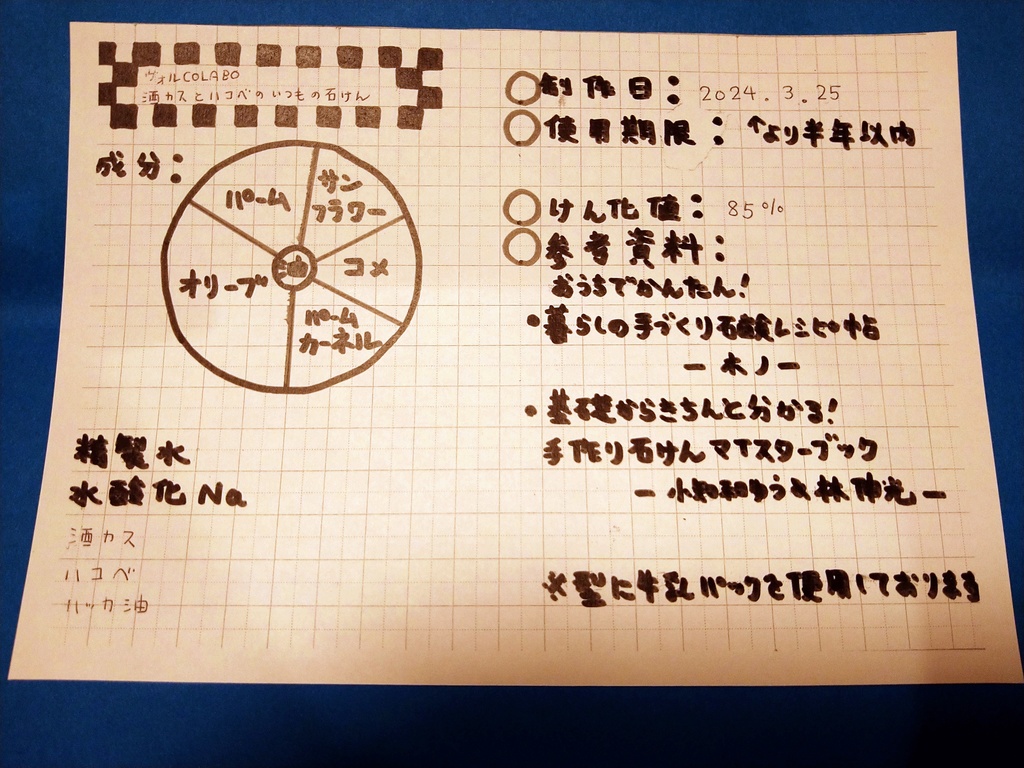 ヴォルCOLABO
酒カスとハコベのいつもの石けん
成分:
油
パーム
サン
フラワー
コメ
オリーブ
パーム
カーネル
精製水
水酸化Na
酒カス
ハコベ
ハッカ油
創作日: 2024.3.25
使用期限: ↑より半年以内
けん化値: 85%
参考資料:
おうちでかんたん!
・暮らしの手づくり石鹸レシピ帖
ー木ノー
・基礎からきちんと分かる!
手作り石けんマイスターブック
ー小知和ゆう&林伸光ー
※型に牛乳パックを使用しております